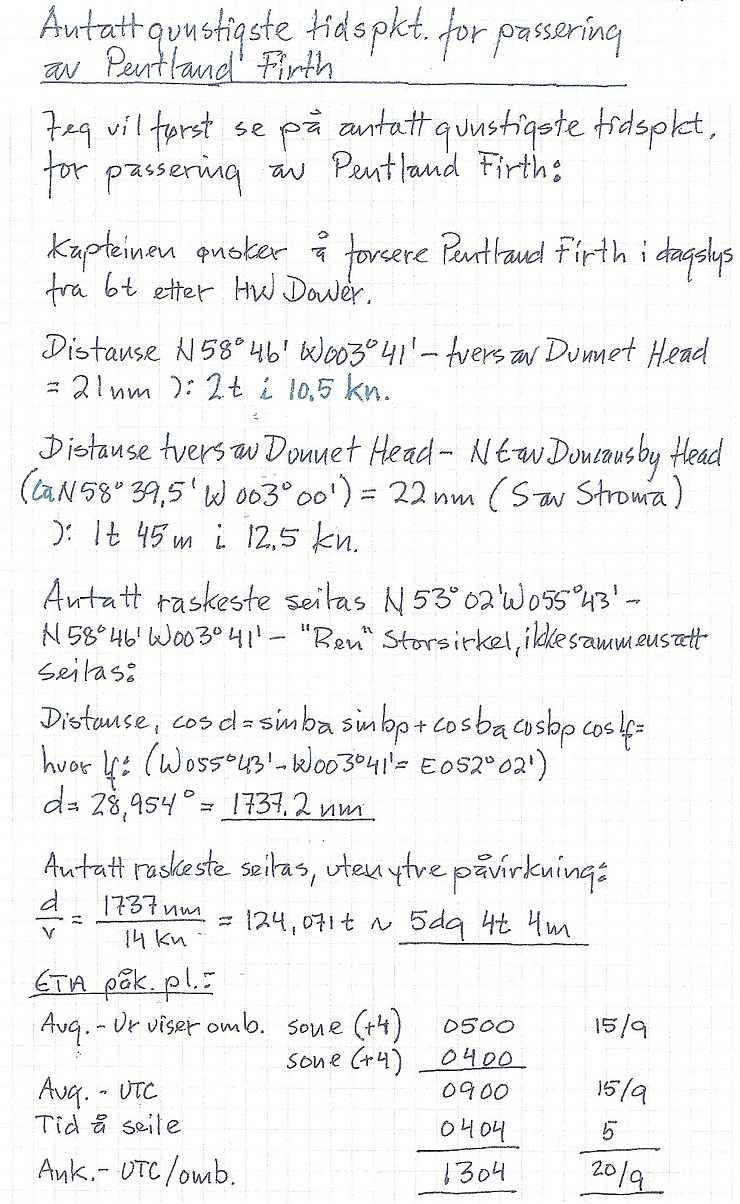 Antatt gunstigste tidspkt. for passering
av Pentland Firth
Jeg vil først se på antatt gunstigste tidspkt.
for passering av Pentland Firth:
Kapteinen ønsker å forsere Pentland Firth i dagslys
fra 6t etter HW Dower.
Distanse N58°46' W003°41' - tvers av Dunnet Head
= 21 nm ): 2t i 10.5 kn.
Distanse tvers av Dunnet Head - NE av Duncansby Head
(ca N58°39,5' W 003°00') = 22 nm (S av Stroma)
): 1t 45m i 12.5 kn.
Antatt raskeste seilas N53°02' W055°43' -
N58°46' W003°41' - "Ren" Storsirkel, ikke sammensatt
seilas:
Distanse, cos d = sin ba sin bp + cos ba cos bp cos lf =
hvor lf: (W055°43' - W003°41' = E052°02')
d = 28,954° = 1737.2 nm
Antatt raskeste seilas, uten ytre påvirkning:
d/v = 1737 nm / 14 kn = 124,071t ~ 5dg 4t 4m
ETA påk. pl.:
Avg. - Ur viser omb. sone (+4) 0500 15/9
sone (+4) 0400
Avg. - UTC 0900 15/9
Tid å seile 0404 5
Ank. - UTC/omb. 1304 20/9